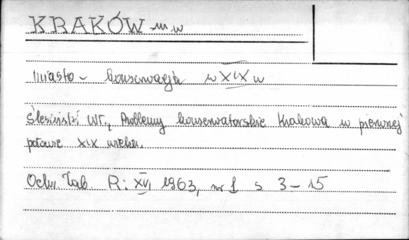 KRAKÓW m w
miasto - konserwacja w XIX w
Ślesiński Wł., Problemy konserwatorskie Krakowa w pierwszej
połowie XIX wieku.
Ochr. Zab. R: XVI 1963, nr 1 s 3-15